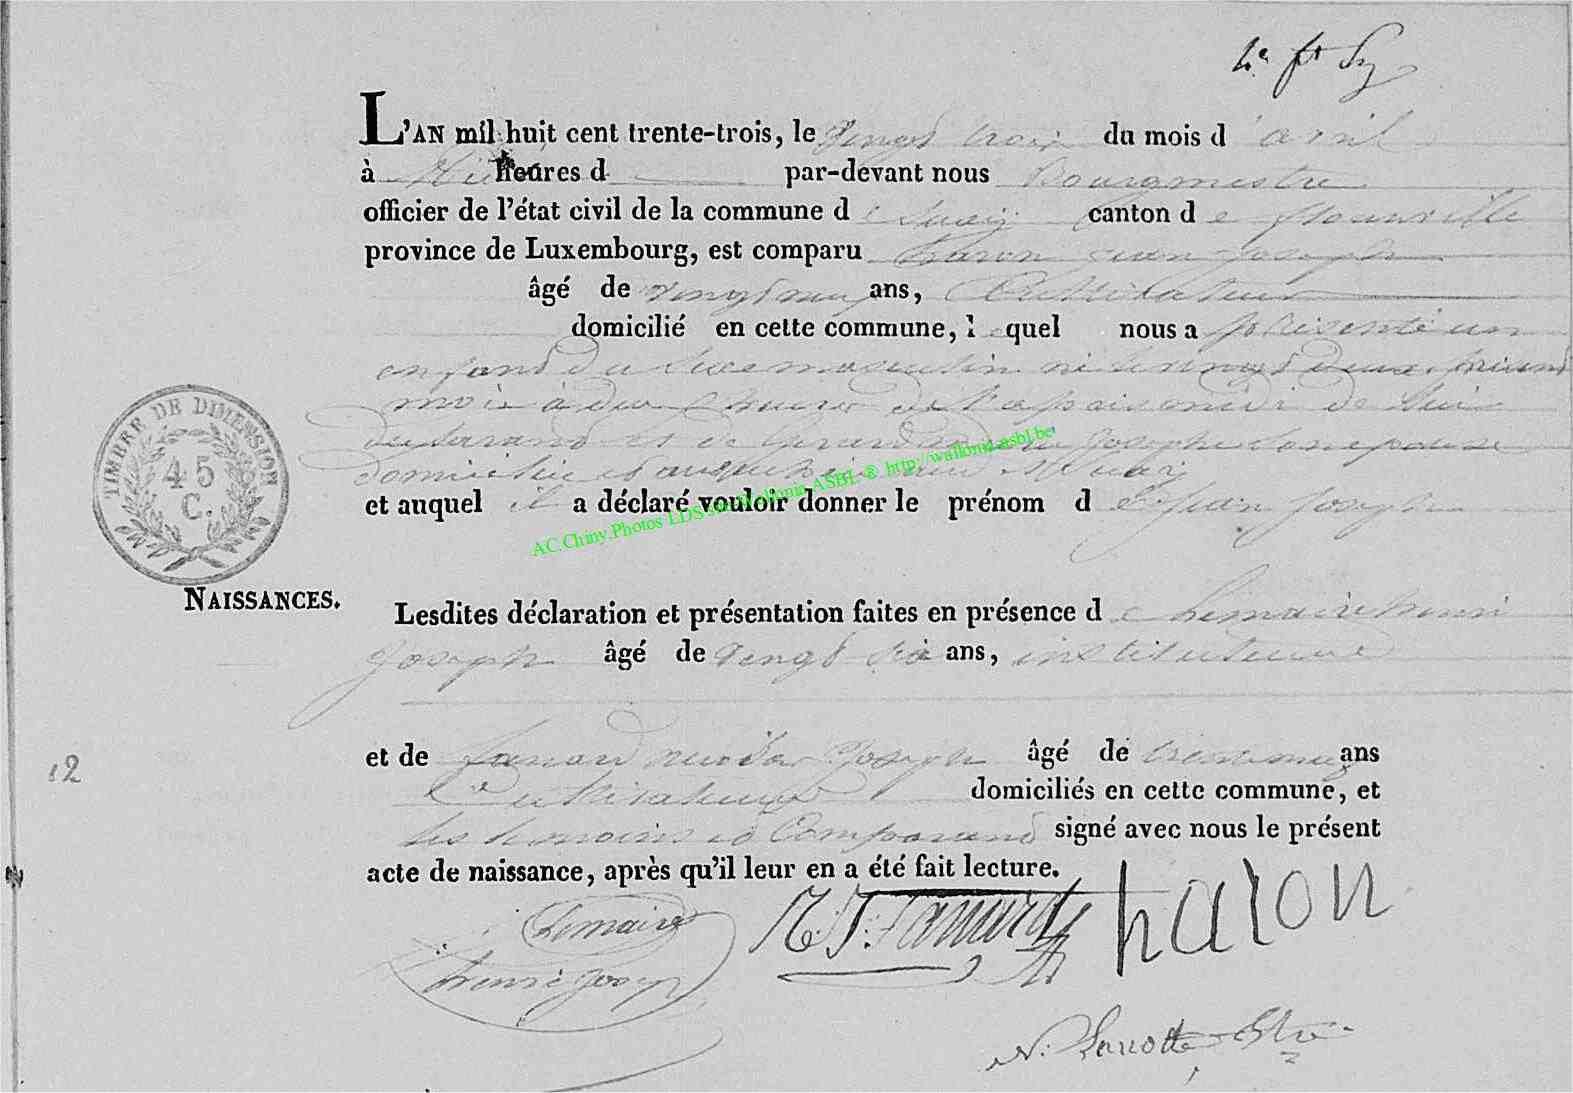 L'AN mil huit cent trente-trois, le vingt trois du mois d'avril
à heures d par-devant nous Bourgmestre
officier de l'état civil de la commune d e Suxy canton d e florenville
province de Luxembourg, est comparu haron jean joseph
âgé de vingt neuf ans, Cultivateur
domicilié en cette commune, lequel nous a présenté un
enfant du sexe masculin né le vingt deux, présent
mois à dix heures de l'apres midi de lui
declarant et de joseph son epouse
domicilié
et auquel il a déclaré vouloir donner le prénom d e Jean Joseph
TIMBRE DE DIMENSION
45
C.
AC.Chiny.Photos LDS sur Wallonia ASBL ® http://wallonia-asbl.be
NAISSANCES.
Lesdites déclaration et présentation faites en présence d e Lemaire henri
Joseph âgé de vingt six ans, instituteur
12
et de Lanard Joseph âgé de trente neuf ans
Cultivateur domiciliés en cette commune, et
les temoins et Comparant signé avec nous le présent
acte de naissance, après qu'il leur en a été fait lecture.
Lemaire
henri josep
N. J. Lanard
haron